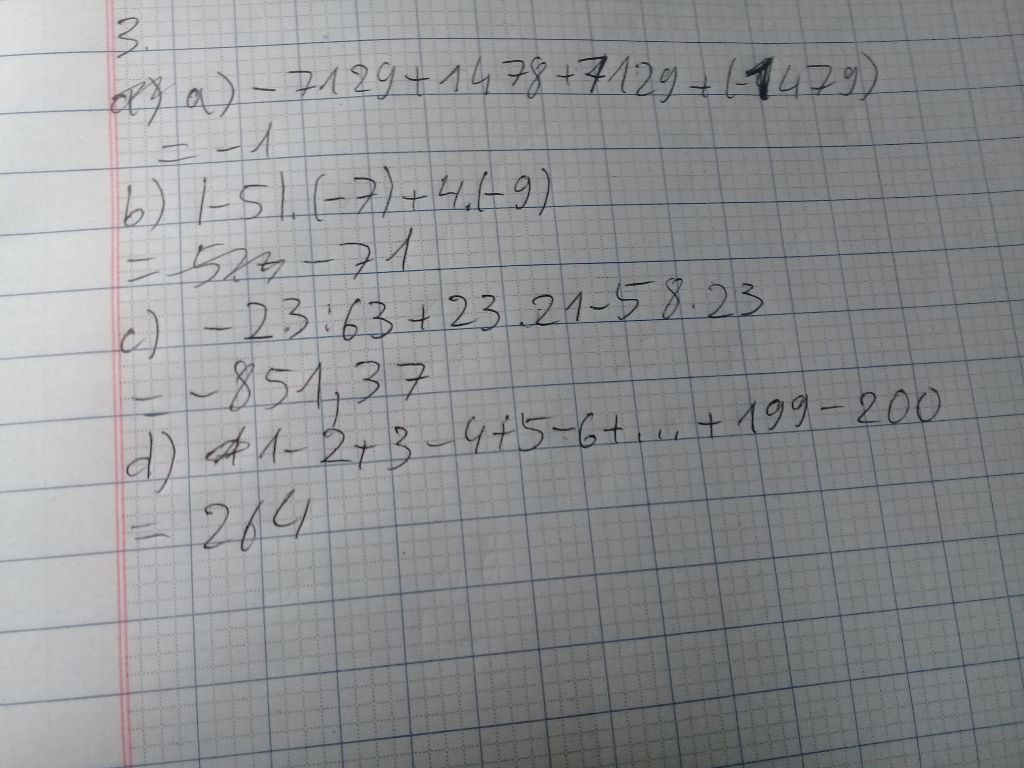 3.
a) - 7129 + 1478 + 7129 + (-1479)
= -1
b) |-5|.(-7) + 4.(-9)
= -71
c) - 23:63 + 23.21 - 58.23
= -851,37
d) 1 - 2 + 3 - 4 + 5 - 6 + ... + 199 - 200
= 264